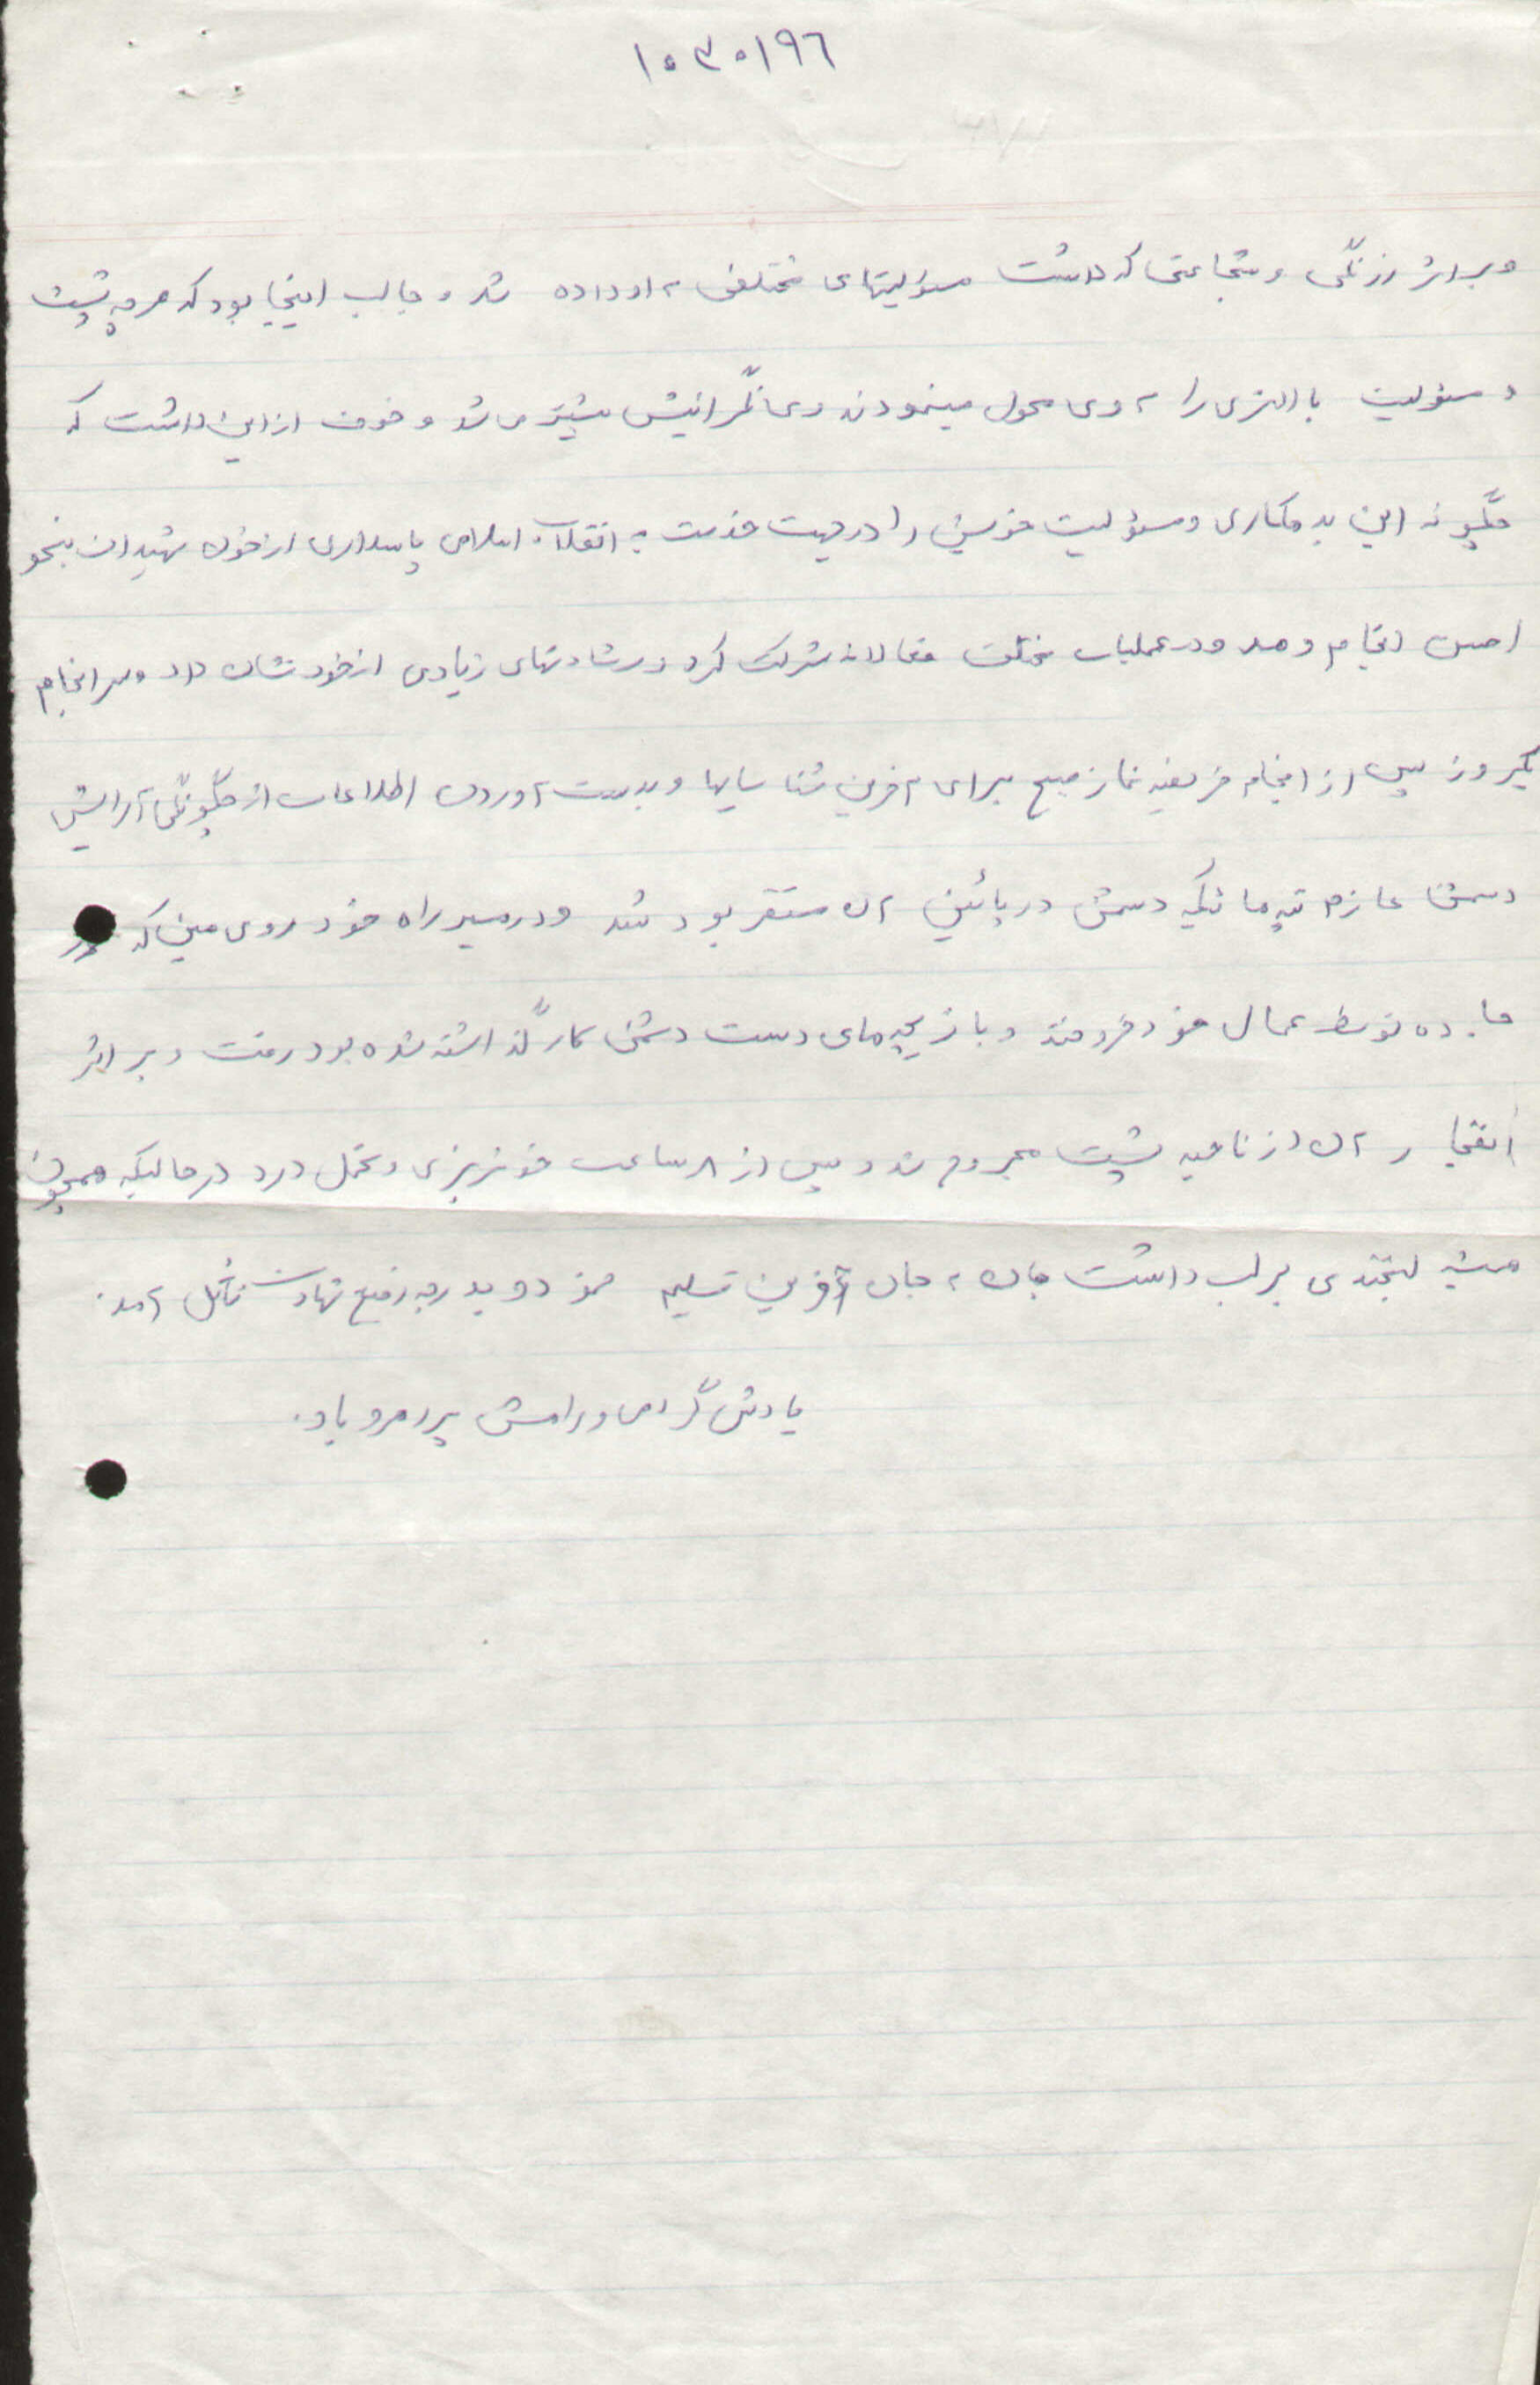 ۱۰۳۰۱۹۶
و بر اثر زرنگی و شجاعتی که داشت مسئولیتهای مختلفی به او داده شد و جالب اینجا بود که هر چه پست
و مسئولیت بالاتری را به وی محول مینمودند وی نگرانیش بیشتر می شد و خوف از این داشت که
چگونه این بدهکاری و مسئولیت خویش را در جهت خدمت به انقلاب اسلامی پاسداری از خون شهیدان بنحو
احسن انجام دهد و در عملیات مختلف فعالانه شرکت کرد و رشادتهای زیادی از خود نشان داد و سرانجام
یکروز پس از انجام فریضه نماز صبح برای آخرین شناسایها و بدست آوردن اطلاعات از چگونگی آرایش
دسمتا عازم تپه هائیکه دشمن در پائین آن مستقر بود شد و در مسیر راه خود روی مین که در
جاده توسط عمال خود فروخته و بازیچه های دست دشمن کار گذاشته شده بود رفت و بر اثر
انفجار آن از ناحیه پشت مجروح شد و پس از ۸ ساعت خونریزی و تحمل درد در حالیکه همچون
همیشه لبخندی بر لب داشت جان به جان آفرین تسلیم نمود و بدرجه رفیع شهادت نائل آمد.
یادش گرامی و راهش پر رهرو باد.